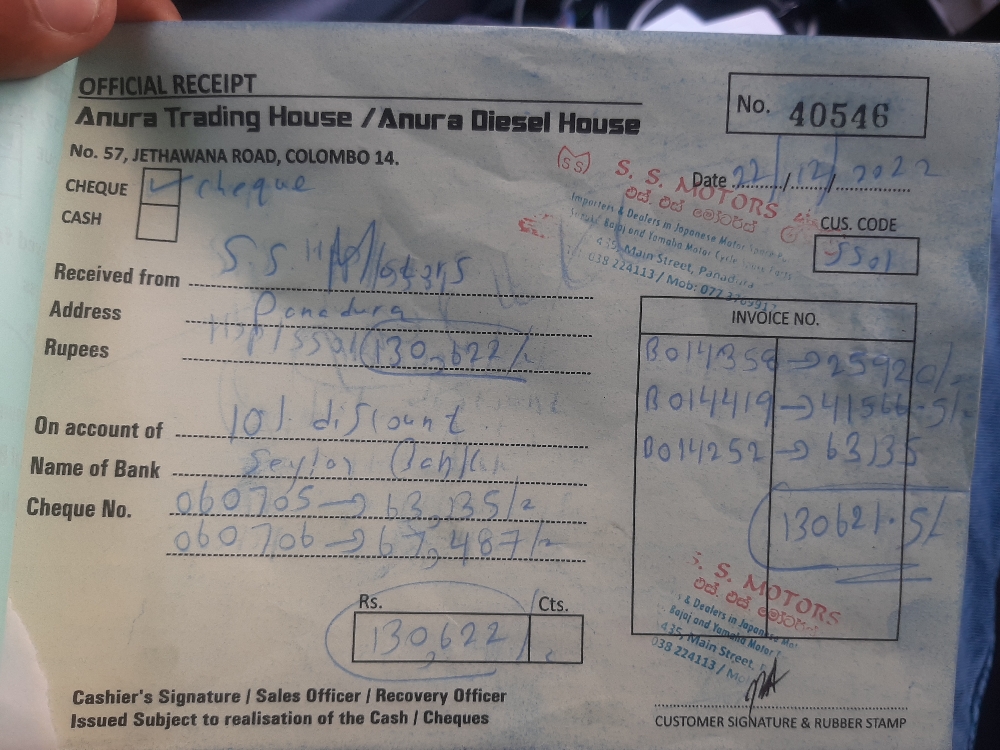 OFFICIAL RECEIPT
Anura Trading House / Anura Diesel House
No. 57, JETHAWANA ROAD, COLOMBO 14.
No. 40546
Date 22/12/2022
CHEQUE ✓ cheque
CASH
CUS. CODE
SS01
S. S. MOTORS
එස්. එස්. මෝටර්ස්
Importers & Dealers in Japanese Motor
Bajaj and Yamaha Motor Cycle
435, Main Street, Panadura
038 224113 / Mob: 077
Received from S.S.
Address Panadura
Rupees 130,622/=
On account of 10% discount
Name of Bank Seylan Bank
Cheque No. 060705 → 63,135/=
060706 → 67,487/=
INVOICE NO.
B014358 → 25920/=
B014419 → 41566.5/=
B014252 → 63135
130621.5/
Rs. Cts.
130,622/
S. S. MOTORS
එස්. එස්. මෝටර්ස්
& Dealers in Japanese
Bajaj and Yamaha Motor
435, Main Street.
038 224113 /
Cashier's Signature / Sales Officer / Recovery Officer
Issued Subject to realisation of the Cash / Cheques
CUSTOMER SIGNATURE & RUBBER STAMP